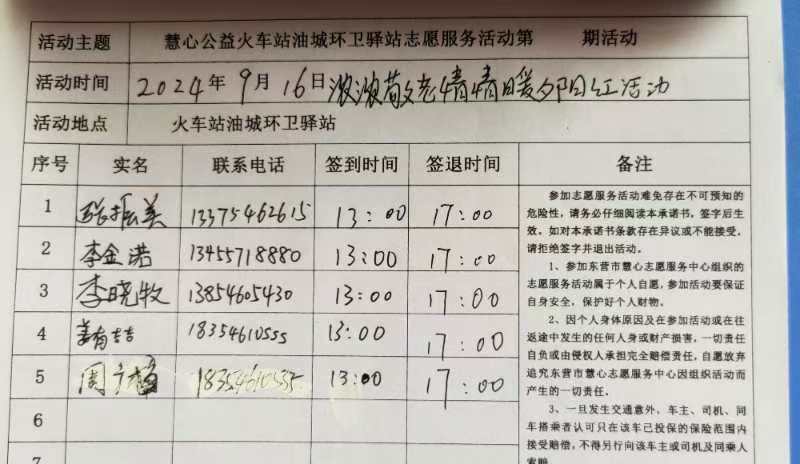 活动主题 慧心公益火车站油城环卫驿站志愿服务活动第 期活动
活动时间 2024年9月16日浓浓敬老情情暖夕阳红活动
活动地点 火车站油城环卫驿站
序号 实名 联系电话 签到时间 签退时间 备注
1 张振美 13375462615 13:00 17:00
2 李金诺 13455718880 13:00 17:00
3 李晓牧 13854605430 13:00 17:00
4 18354610555 13:00 17:00
5 周 18354610535 13:00 17:00
6
7
参加志愿服务活动难免存在不可预知的
危险性,请务必仔细阅读本承诺书,签字后生
效。如对本承诺书条款存在异议或不能接受,
请拒绝签字并退出活动。
1、参加东营市慧心志愿服务中心组织的
志愿服务活动属于个人自愿,参加活动要保证
自身安全,保护好个人财物。
2、因个人身体原因及在参加活动或在往
返途中发生的任何人身或财产损害,一切责任
自负或由侵权人承担完全赔偿责任,自愿放弃
追究东营市慧心志愿服务中心因组织活动而
产生的一切责任。
3、一旦发生交通意外,车主、司机、同
车搭乘者认可只在该车已投保的保险范围内
接受赔偿,不得另行向该车主或司机及同乘人
索赔